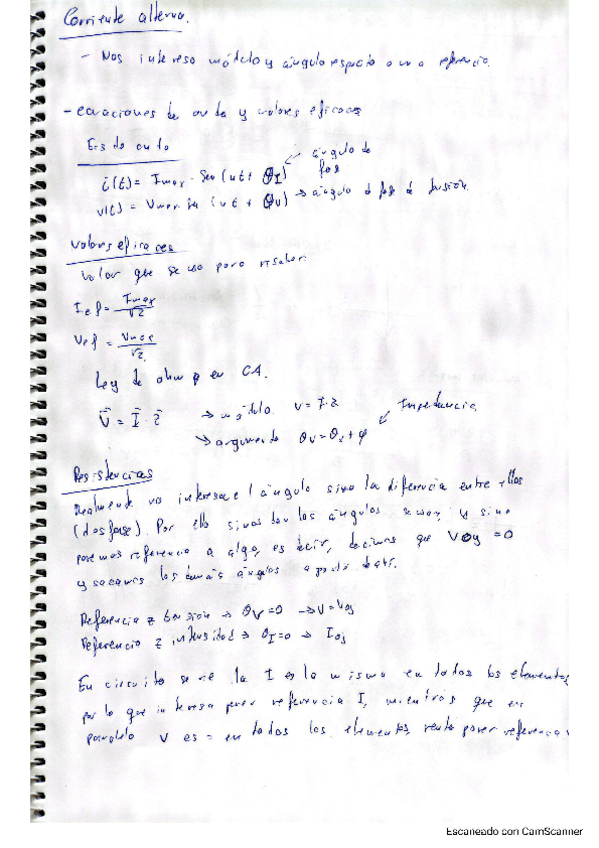 Corriente alterna.
- Nos interesa módulo y ángulo respecto a una referencia.
- ecuaciones de onda y valores eficaces
Ec de onda
i(t) = Imax · Sen (wt + θI) ángulo de fase
v(t) = Vmax sen (wt + θv) → ángulo d fase d tensión.
Valores eficaces
Valor que se usa para resolver.
Ief = Imax/√2
Vef = Vmax/√2
Ley de ohm en CA.
V = I · Z → módulo. V = I · Z Impedancia.
→ argumento θv = θI + φ
Resistencias
Realmente no interesa el ángulo sino la diferencia entre ellos
(desfase). Por ello si nos dan los ángulos y sino
ponemos referencia a algo, es decir, decimos que =0
y sacamos los demás ángulos a partir de ahí.
Referencia tensión → θv=0 → V=V0∠
Referencia intensidad → θI=0 → I0∠
En circuito serie la I es la misma en todos los elementos,
por lo que interesa poner referencia I, mientras que en
paralelo V es = en todos los elementos, renta poner referencia V
Escaneado con CamScanner